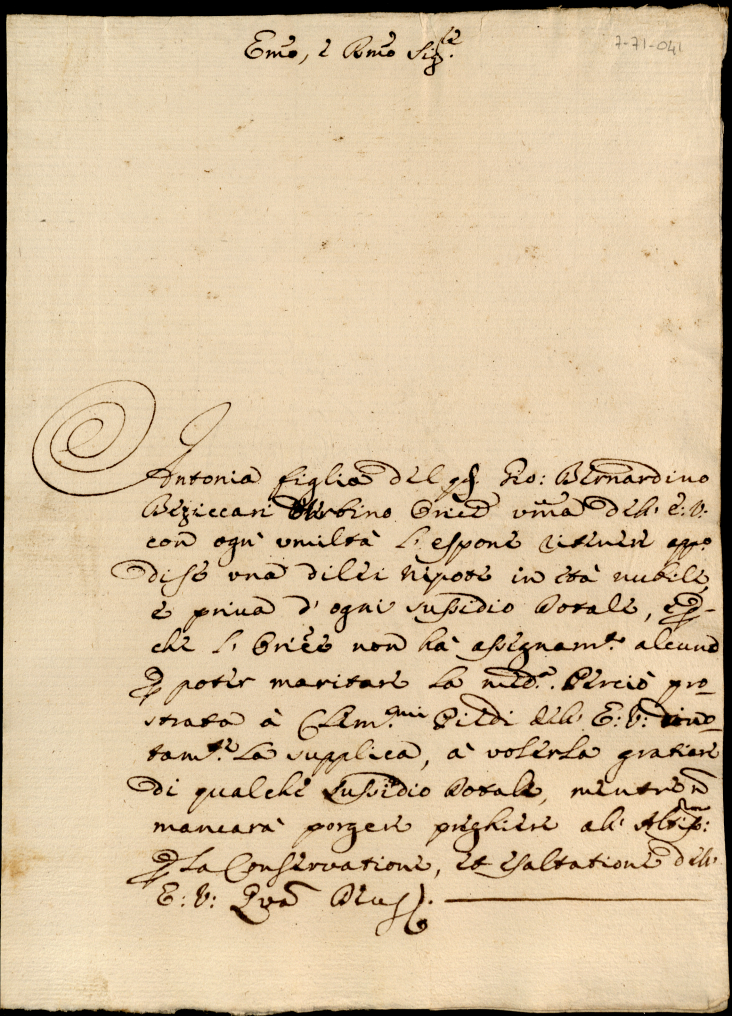 Emo, e Rmo Sig.re
7-71-041
Antonia figlia del qd. Gio: Bernardino
Beziccari Urbino Orice vma dell' E: V:
con ogni umiltà l' espone ritenere app.o
di se una di lei nipote in età nubile,
e priva d' ogni sussidio dotale, e p-
che l' Orice non hà assegnam.to alcuno
p poter maritare la med.a Perciò pro-
strata à Clem.mi Piedi dell' E: V:
tam.te La supplica, à volerla gratiare
di qualche sussidio dotale, mentre n
mancarà porgere preghiere all' Altis.mo:
p la Conservatione, et esaltatione dell'
E: V: Qua Deus